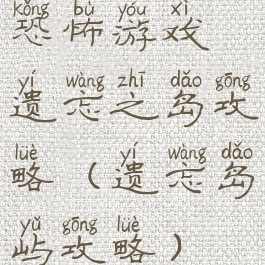 kǒng bù yóu xì
恐怖游戏
yí wàng zhī dǎo gōng
遗忘之岛攻
lüè yí wàng dǎo
略（遗忘岛
yǔ gōng lüè
屿攻略）